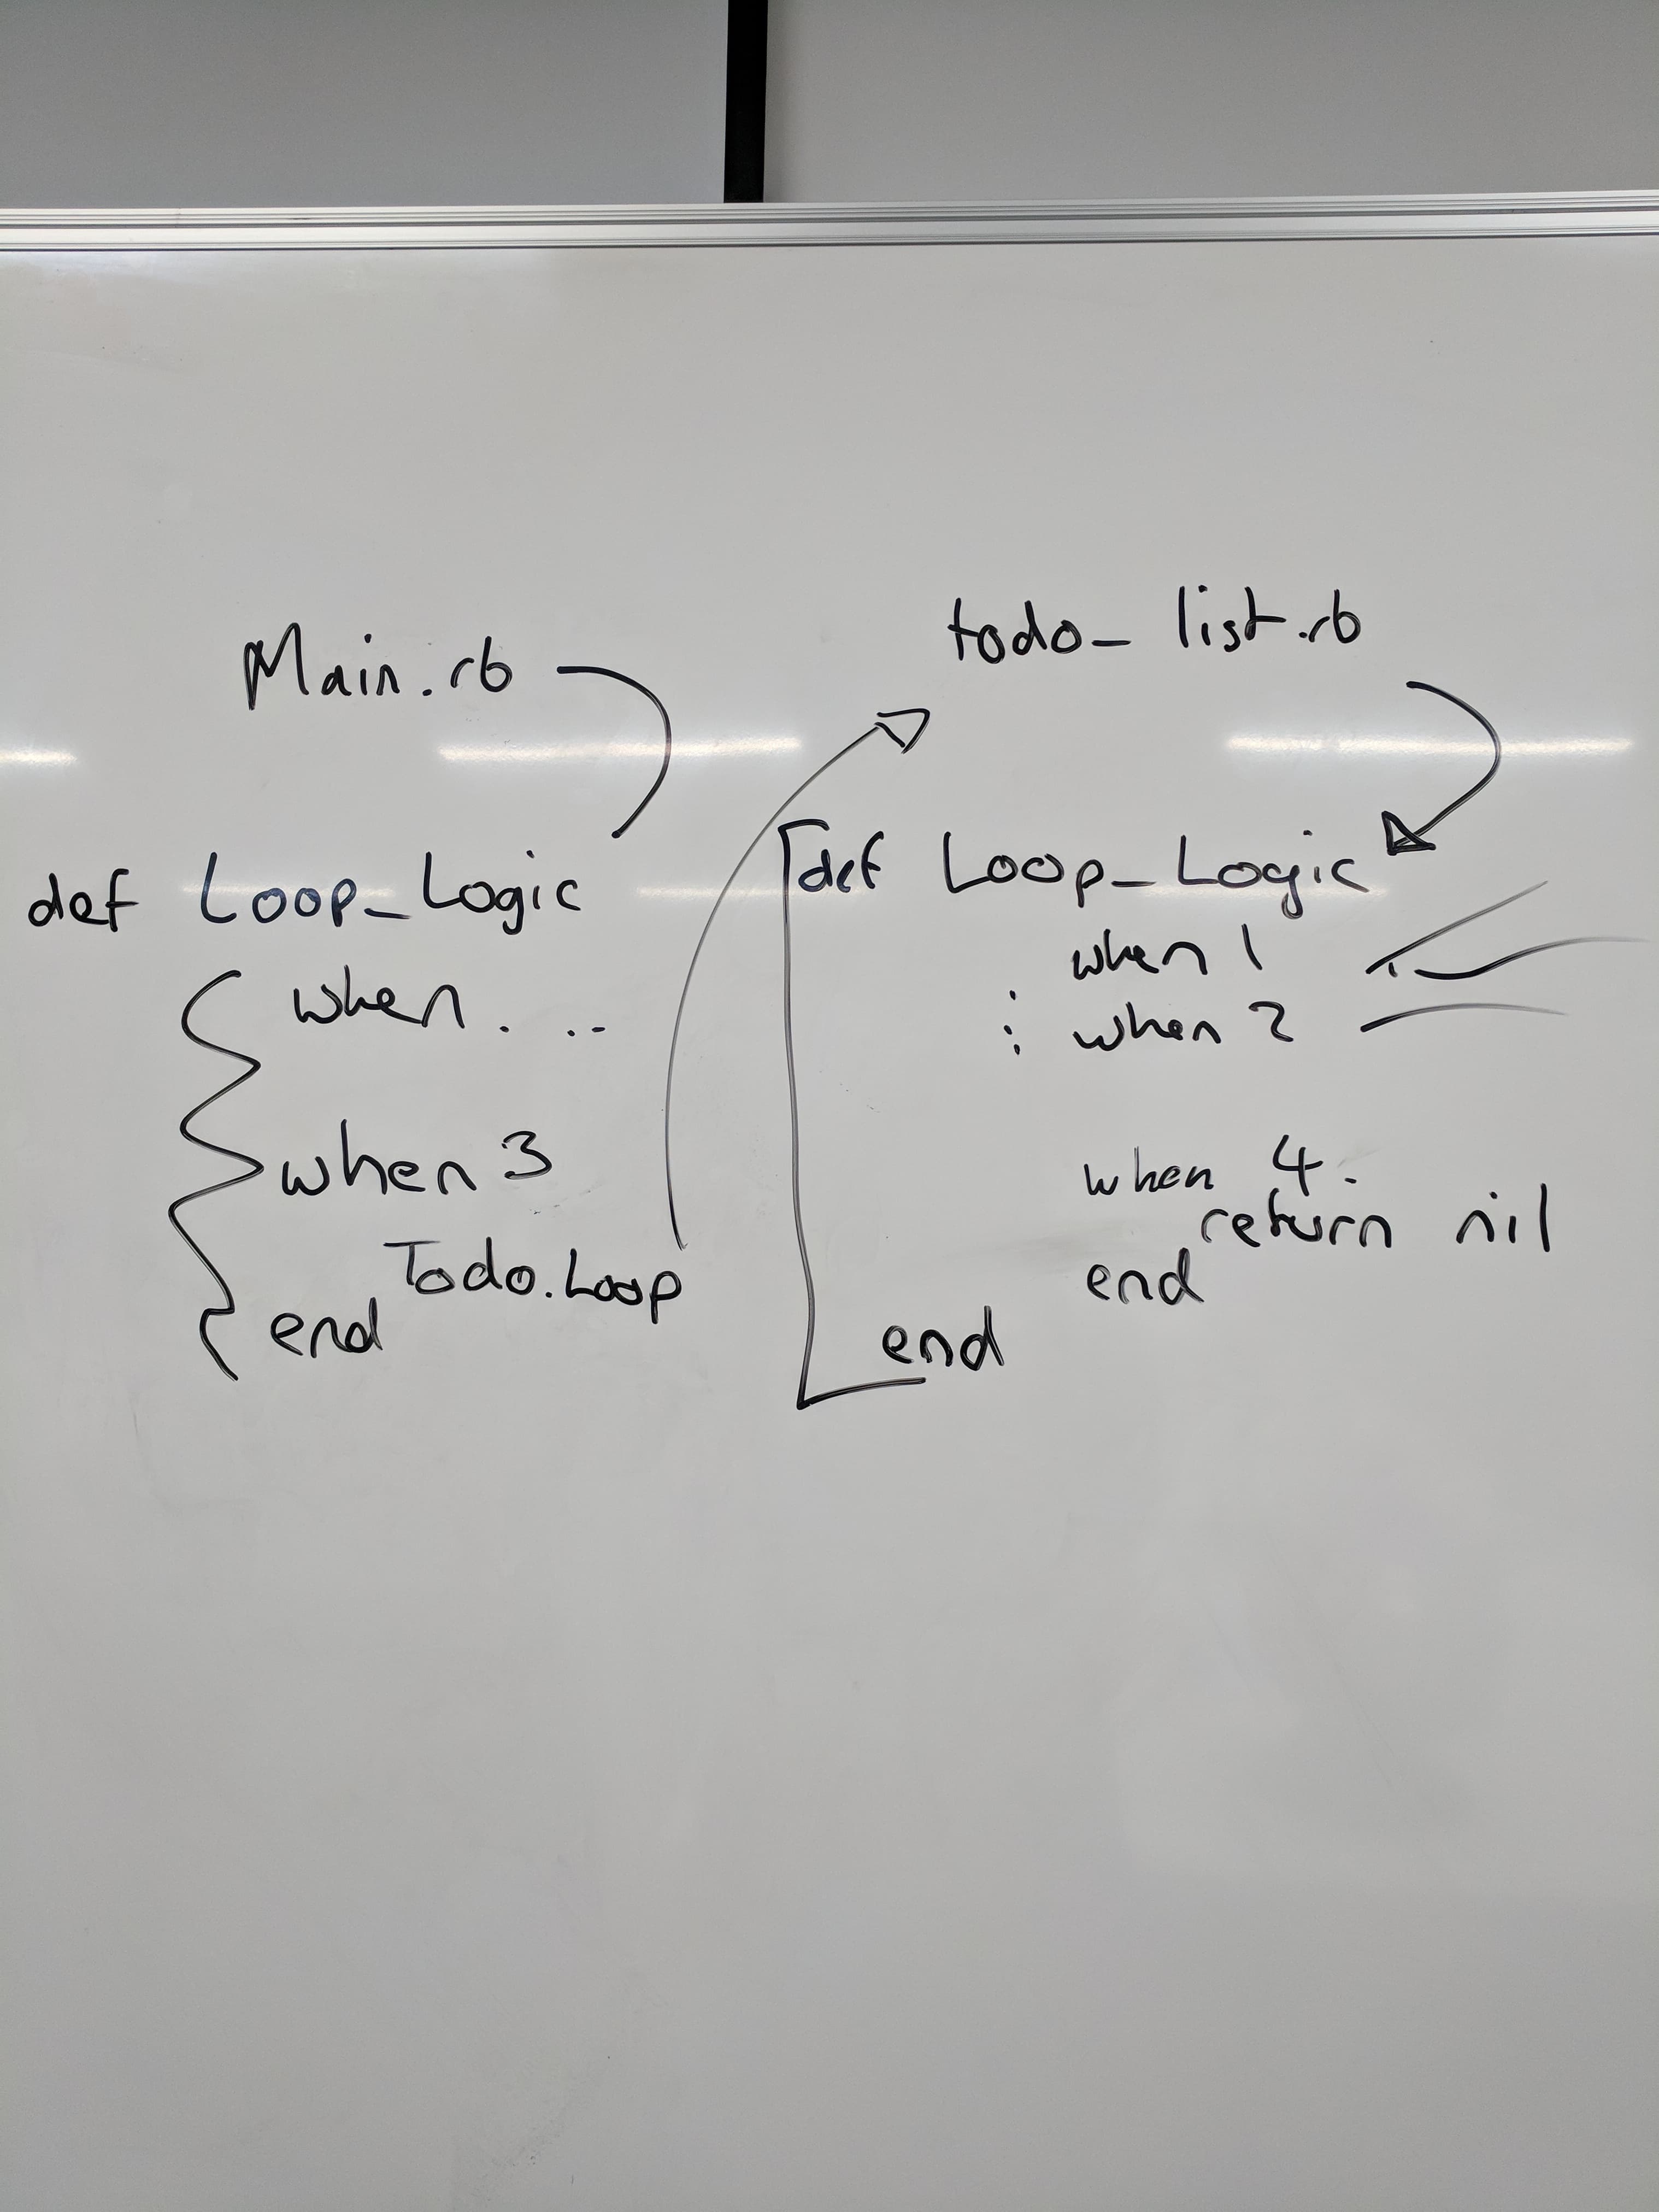 Main.rb
def Loop_Logic
when. ..
when 3
Todo.Loop
end
todo_ list.rb
def Loop_Logic
when 1
: when 2
when 4.
return nil
end
end